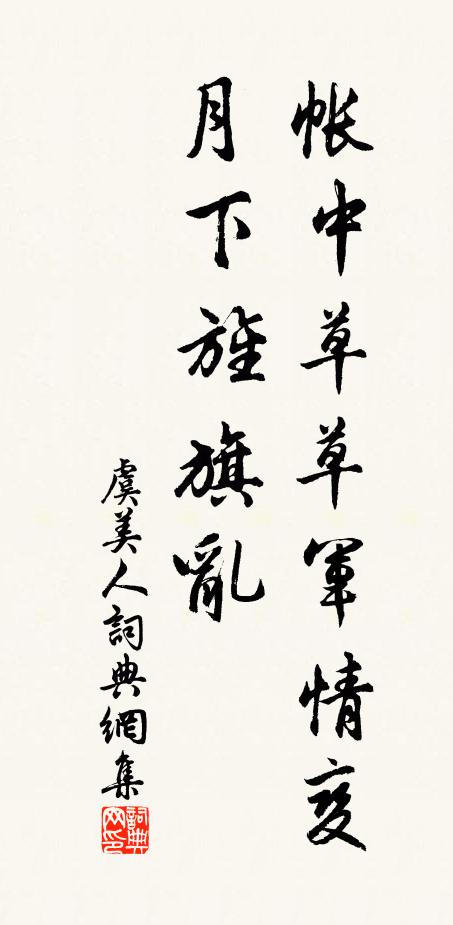 帳中草草軍情變
月下旌旗亂
虞美人詞典網集
詞典网印